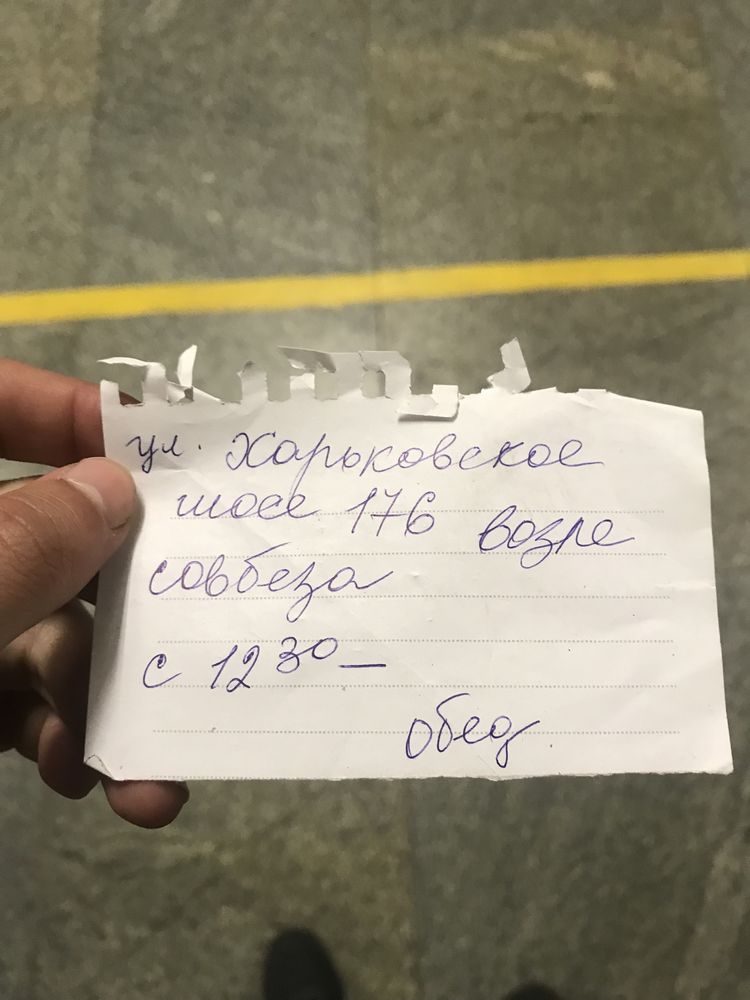 ул. Харьковское
шосе 176 возле
совбеза
с 12 30 –
обед